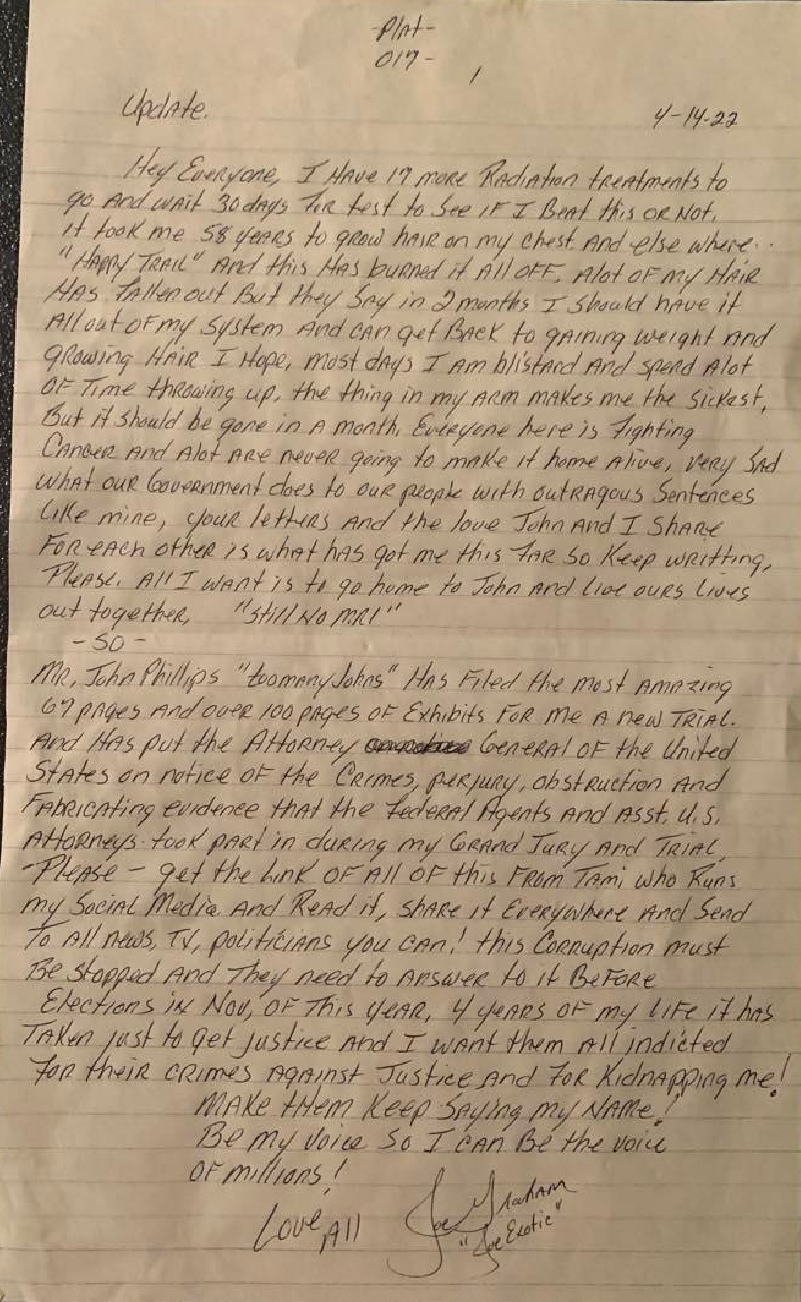 -Plat-
017-
1
Update.
4-14-22
Hey Everyone, I Have 17 more Radiation treatments to
go And wait 30 days For test to See if I Beat this or Not,
it took me 58 years to grow hair on my chest And else where..
"Happy Trail" And this Has burned it All off. Alot of my Hair
Has Fallen out But they Say in 2 months I Should have it
All out of my System And can get Back to gaining weight And
growing Hair I Hope, most days I Am blistard And spend Alot
of Time throwing up, the thing in my Arm makes me the Sickest,
But it Should be gone in A month. Everyone here is Fighting
Cancer And Alot Are never going to make it home Alive, very Sad
what our Government does to our people with outragous Sentences
Like mine, your letters And the love John And I Share
For each other is what has got me this Far So Keep writting,
Please. All I want is to go home to John And Live ours Lives
out together, "Still No MRI"
- SO -
Mr, John Phillips "toomanyJohns" Has Filed the most Amazing
67 pages And over 100 pages of Exhibits For me A new Trial.
And Has put the Attorney General of the United
States on notice of the Crimes, perjury, obstruction And
Fabricating evidence that the Federal Agents And Asst. U.S.
Attorneys took part in during my Grand Jury And Trial,
Please - get the Link of All of this From Tami who Runs
my Social Media And Read it, Share it Everywhere And Send
To All news, TV, politicians you can! this Corruption must
Be Stopped And They need to Answer to it Before
Elections in Nov, of This year, 4 years of my Life it has
Taken Just to get Justice And I want them All indicted
For their crimes Against Justice And For Kidnapping me!
Make them Keep Saying my Name!
Be my voice So I can Be the voice
of millions!
Love All
Joe Graham
"Joe Exotic"